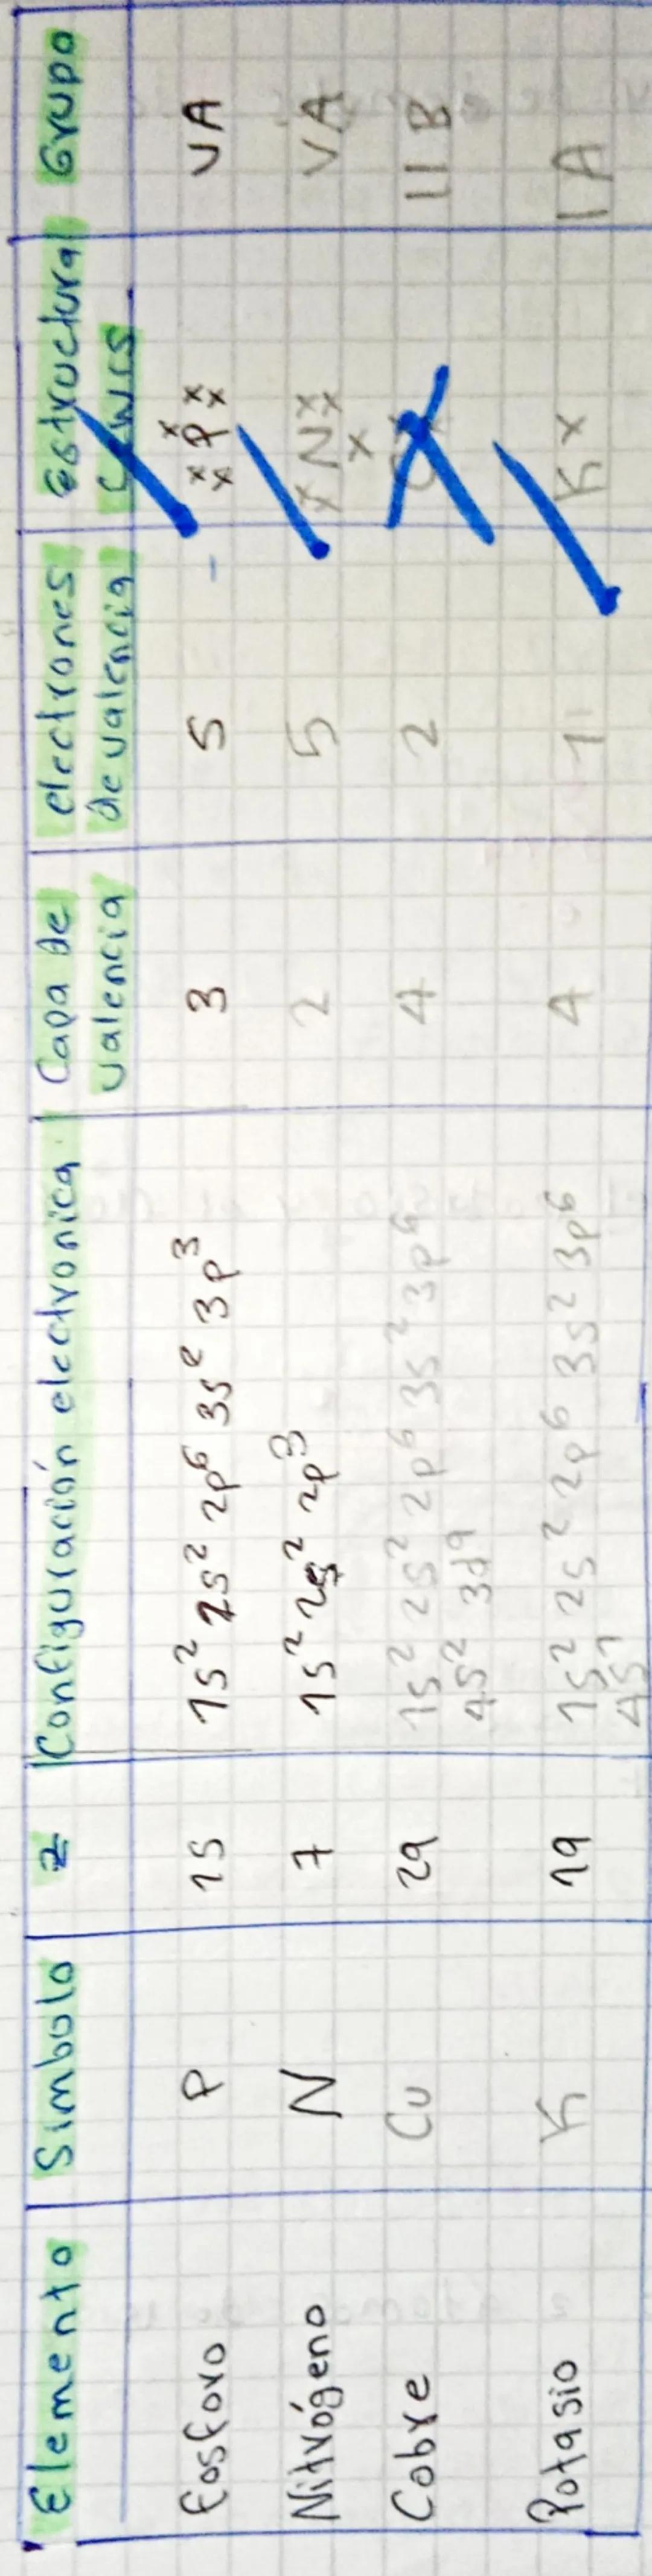 Elemento Simbolo Z Configuración electronica Capa de valencia electrones de valencia Estructura Lewis Grupo
fosforo P 15 1s² 2s² 2p⁶ 3s² 3p³ 3 5 P VA
Nitrógeno N 7 1s² 2s² 2p³ 2 5 N VA
Cobre Cu 29 1s² 2s² 2p⁶ 3s² 3p⁶ 4 2 II B
4s² 3d⁹
Potasio K 19 1s² 2s² 2p⁶ 3s² 3p⁶ 4 1 K I A
4s¹